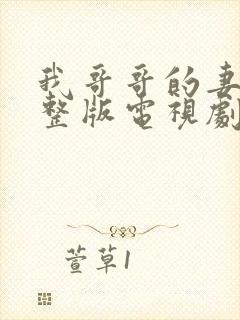 我哥哥的妻
整版電視劇
萱草1